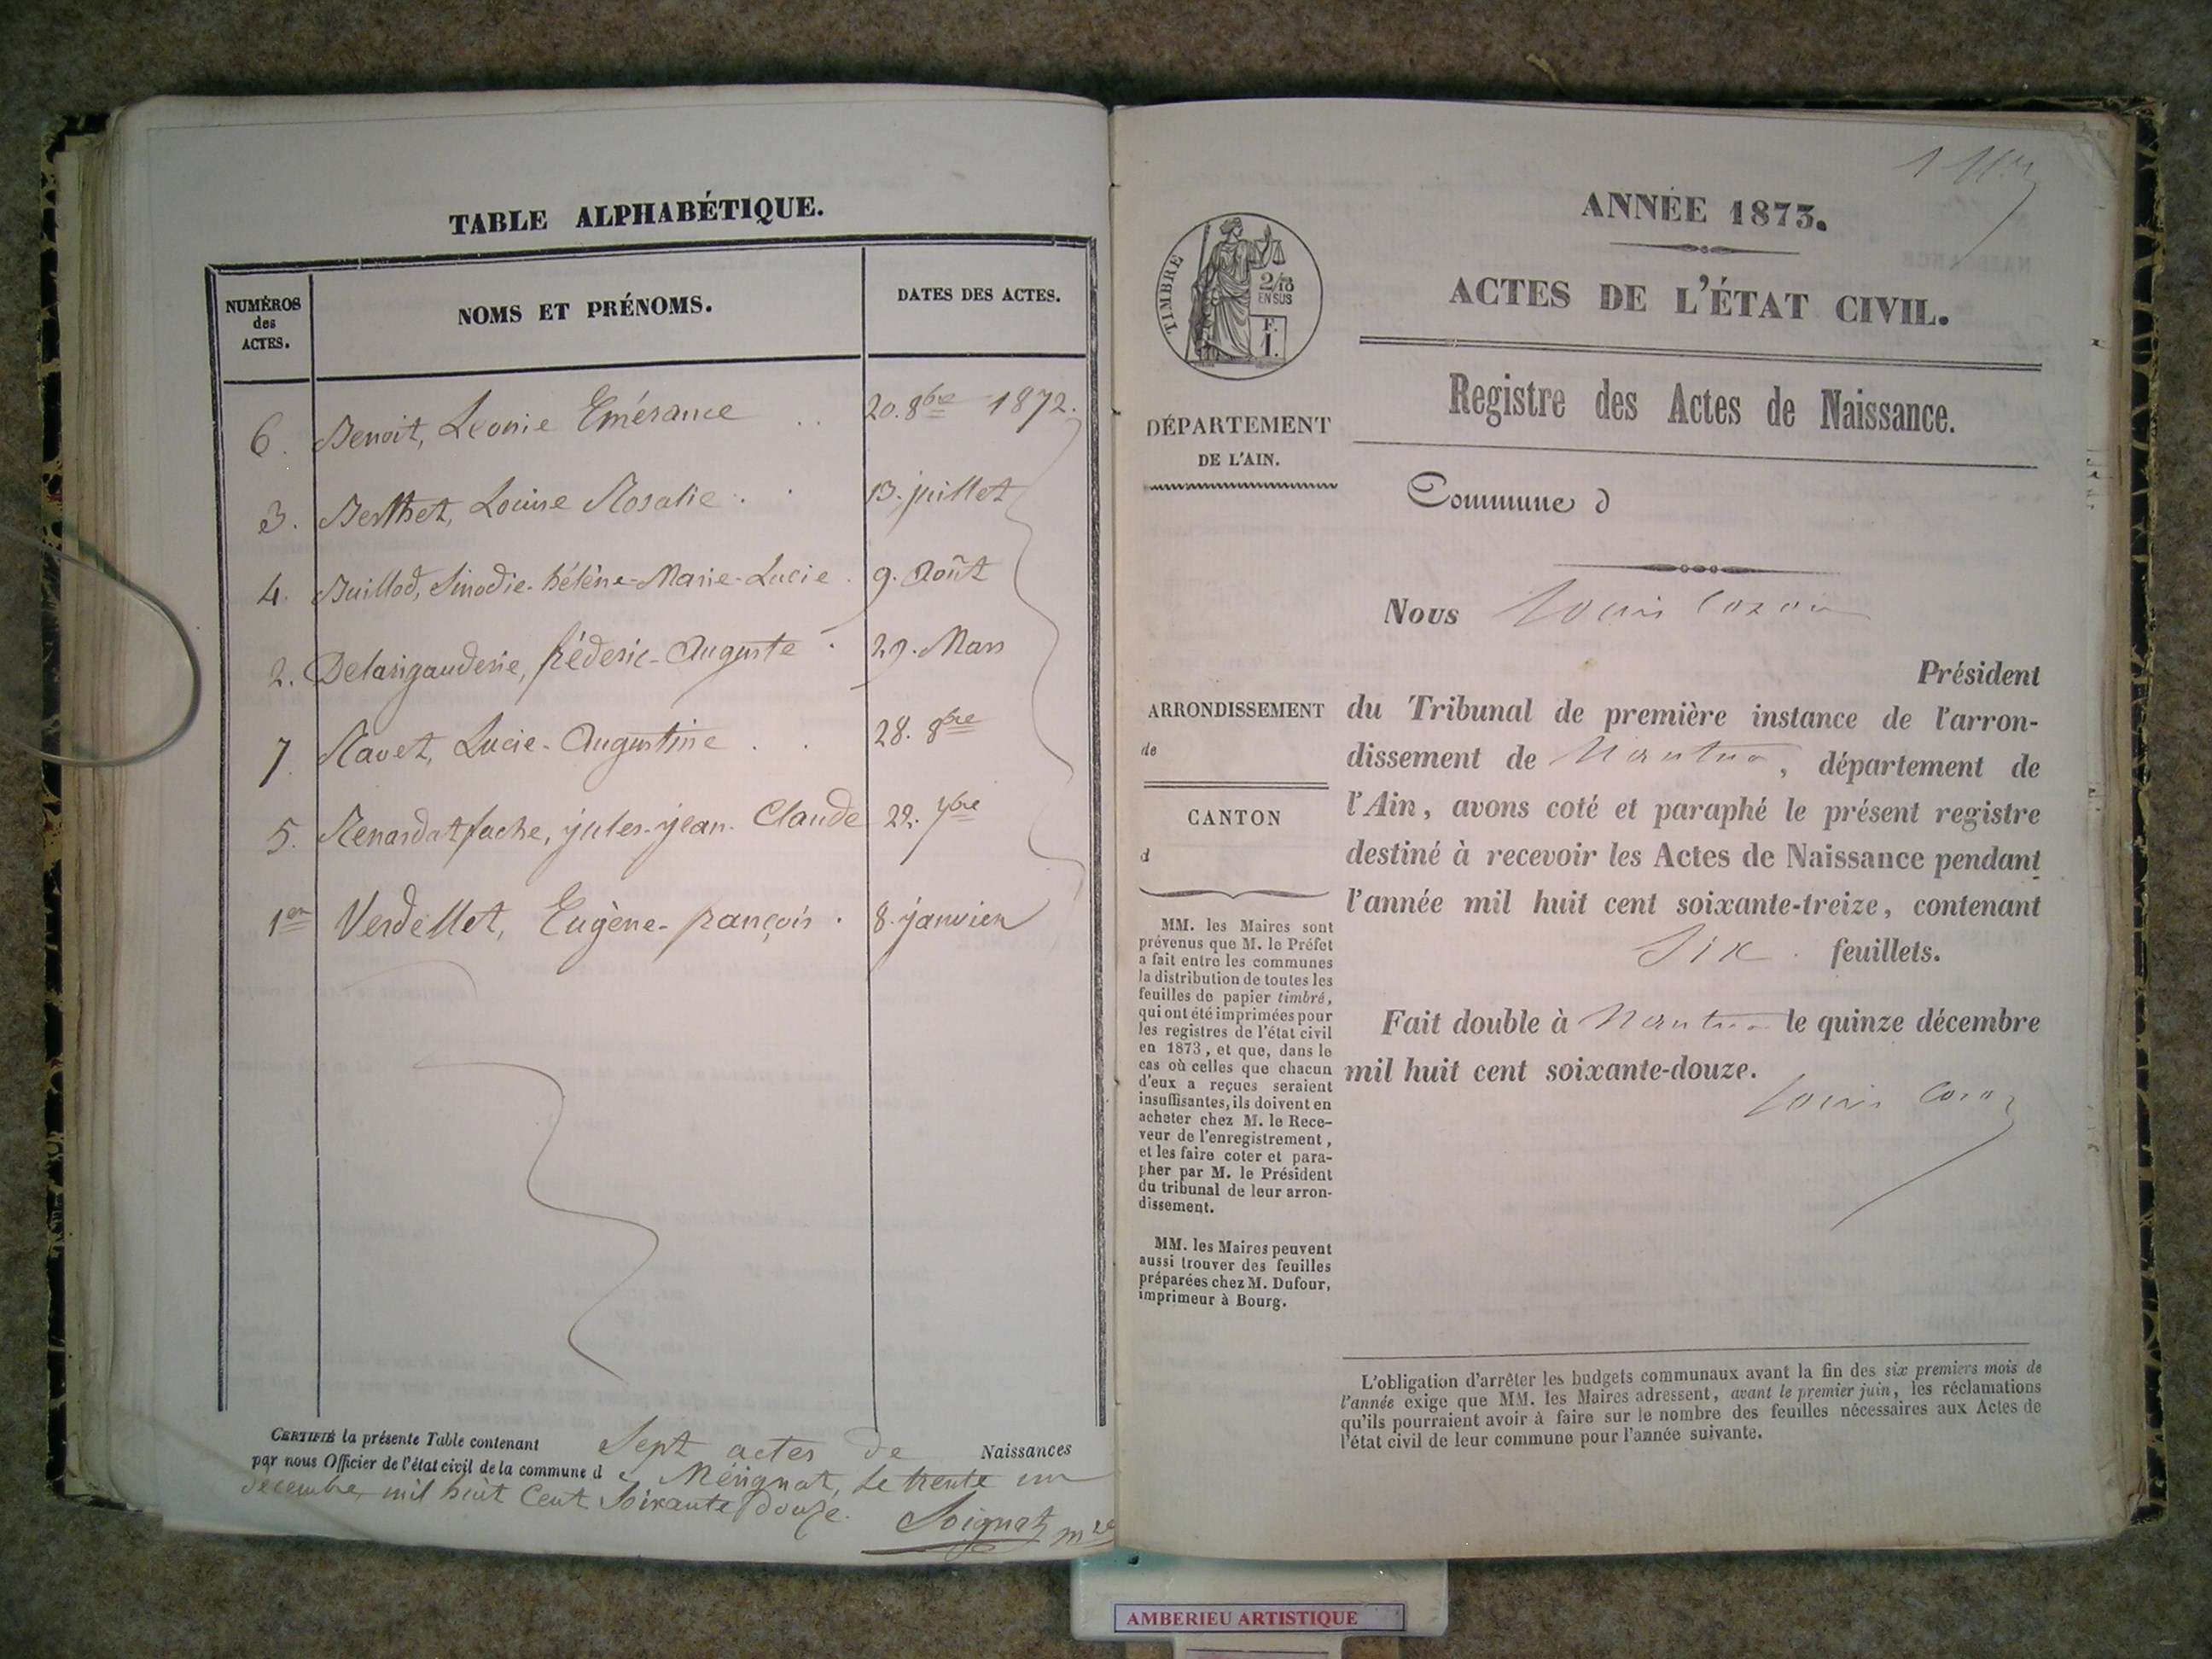 TABLE ALPHABÉTIQUE.
NUMÉROS
des
ACTES.
NOMS ET PRÉNOMS.
DATES DES ACTES.
6. Benoit, Leonie Emérance . . 20. 8bre 1872.
3. Berthet, Louise Rosalie . . 13. juillet
4. Buillod, Sinodie-hélène-Marie-Lucie . 9. Août
2. Delarigauderie, frédéric-Auguste . 29. Mars
7. Navet, Lucie-Augustine . . 28. 8bre
5. Renardatfache, jules-jean-Claude 22. 7bre
1er Verdellet, Eugène-françois . 8. janvier
CERTIFIÉ la présente Table contenant Sept actes de Naissances
par nous Officier de l'état civil de la commune d e Mérignat, le trente un
décembre mil huit Cent Soixante douze.
Soignat mre
ANNÉE 1873.
ACTES DE L'ÉTAT CIVIL.
Registre des Actes de Naissance.
TIMBRE
2/10
EN SUS
F.
1.
DÉPARTEMENT
DE L'AIN.
Commune d
Nous Louis Cozon
Président
du Tribunal de première instance de l'arron-
dissement de Nantua, département de
l'Ain, avons coté et paraphé le présent registre
destiné à recevoir les Actes de Naissance pendant
l'année mil huit cent soixante-treize, contenant
Six feuillets.
Fait double à Nantua le quinze décembre
mil huit cent soixante-douze.
Louis Cozon
ARRONDISSEMENT
de
CANTON
d
MM. les Maires sont
prévenus que M. le Préfet
a fait entre les communes
la distribution de toutes les
feuilles de papier timbré,
qui ont été imprimées pour
les registres de l'état civil
en 1873, et que, dans le
cas où celles que chacun
d'eux a reçues seraient
insuffisantes, ils doivent en
acheter chez M. le Rece-
veur de l'enregistrement,
et les faire coter et para-
pher par M. le Président
du tribunal de leur arron-
dissement.
MM. les Maires peuvent
aussi trouver des feuilles
préparées chez M. Dufour,
imprimeur à Bourg.
L'obligation d'arrêter les budgets communaux avant la fin des six premiers mois de
l'année exige que MM. les Maires adressent, avant le premier juin, les réclamations
qu'ils pourraient avoir à faire sur le nombre des feuilles nécessaires aux Actes de
l'état civil de leur commune pour l'année suivante.
AMBERIEU ARTISTIQUE